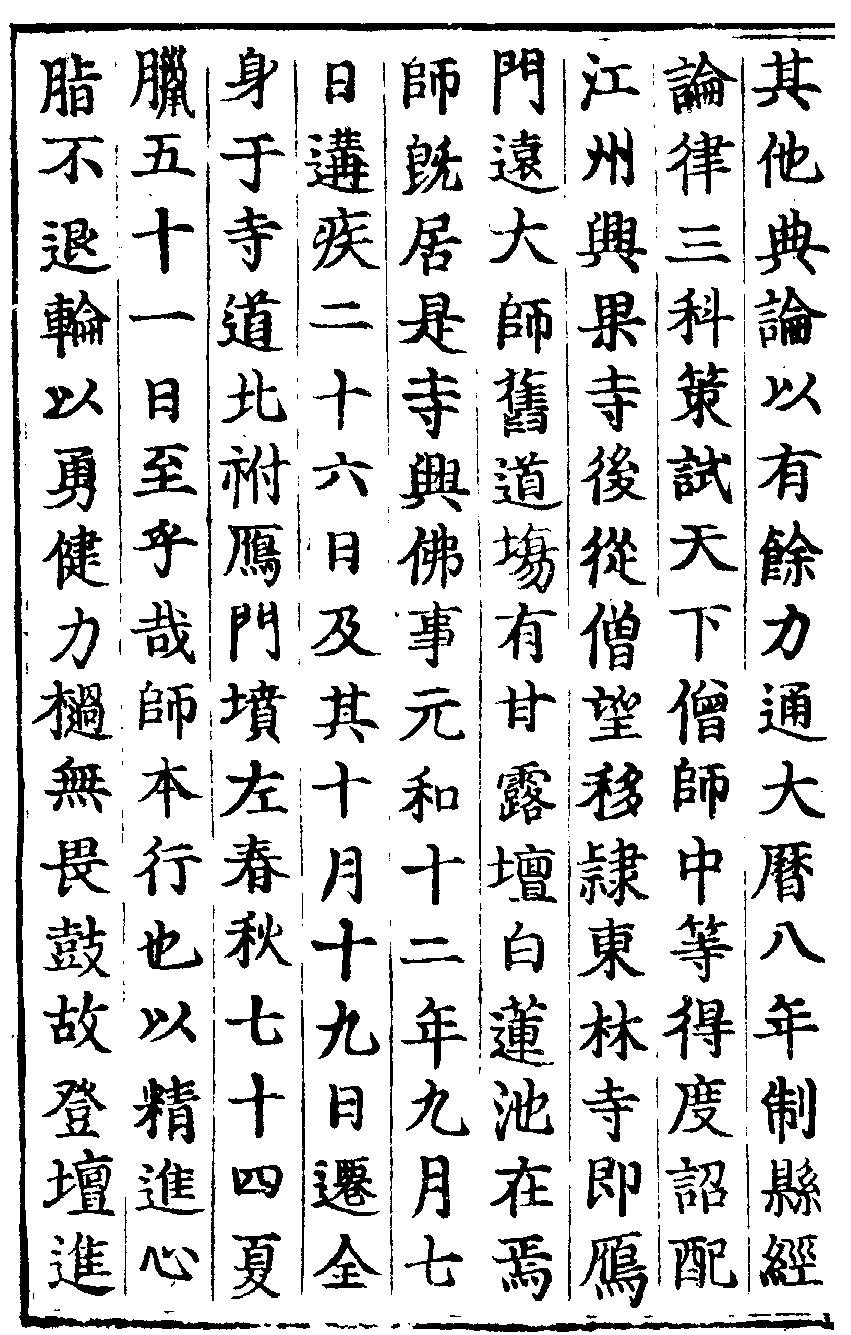 其他典論以有餘力通大曆八年制縣經
論律三科策試天下僧師中等得度詔配
江州興果寺後從僧望移隷東林寺即鴈
門遠大師舊道塲有甘露壇白蓮池在焉
師旣居是寺興佛事元和十二年九月七
日遘疾二十六日及其十月十九日遷全
身于寺道北祔鴈門墳左春秋七十四夏
臘五十一日至乎哉師本行也以精進心
脂不退輪以勇健力撾無畏鼓故登壇進